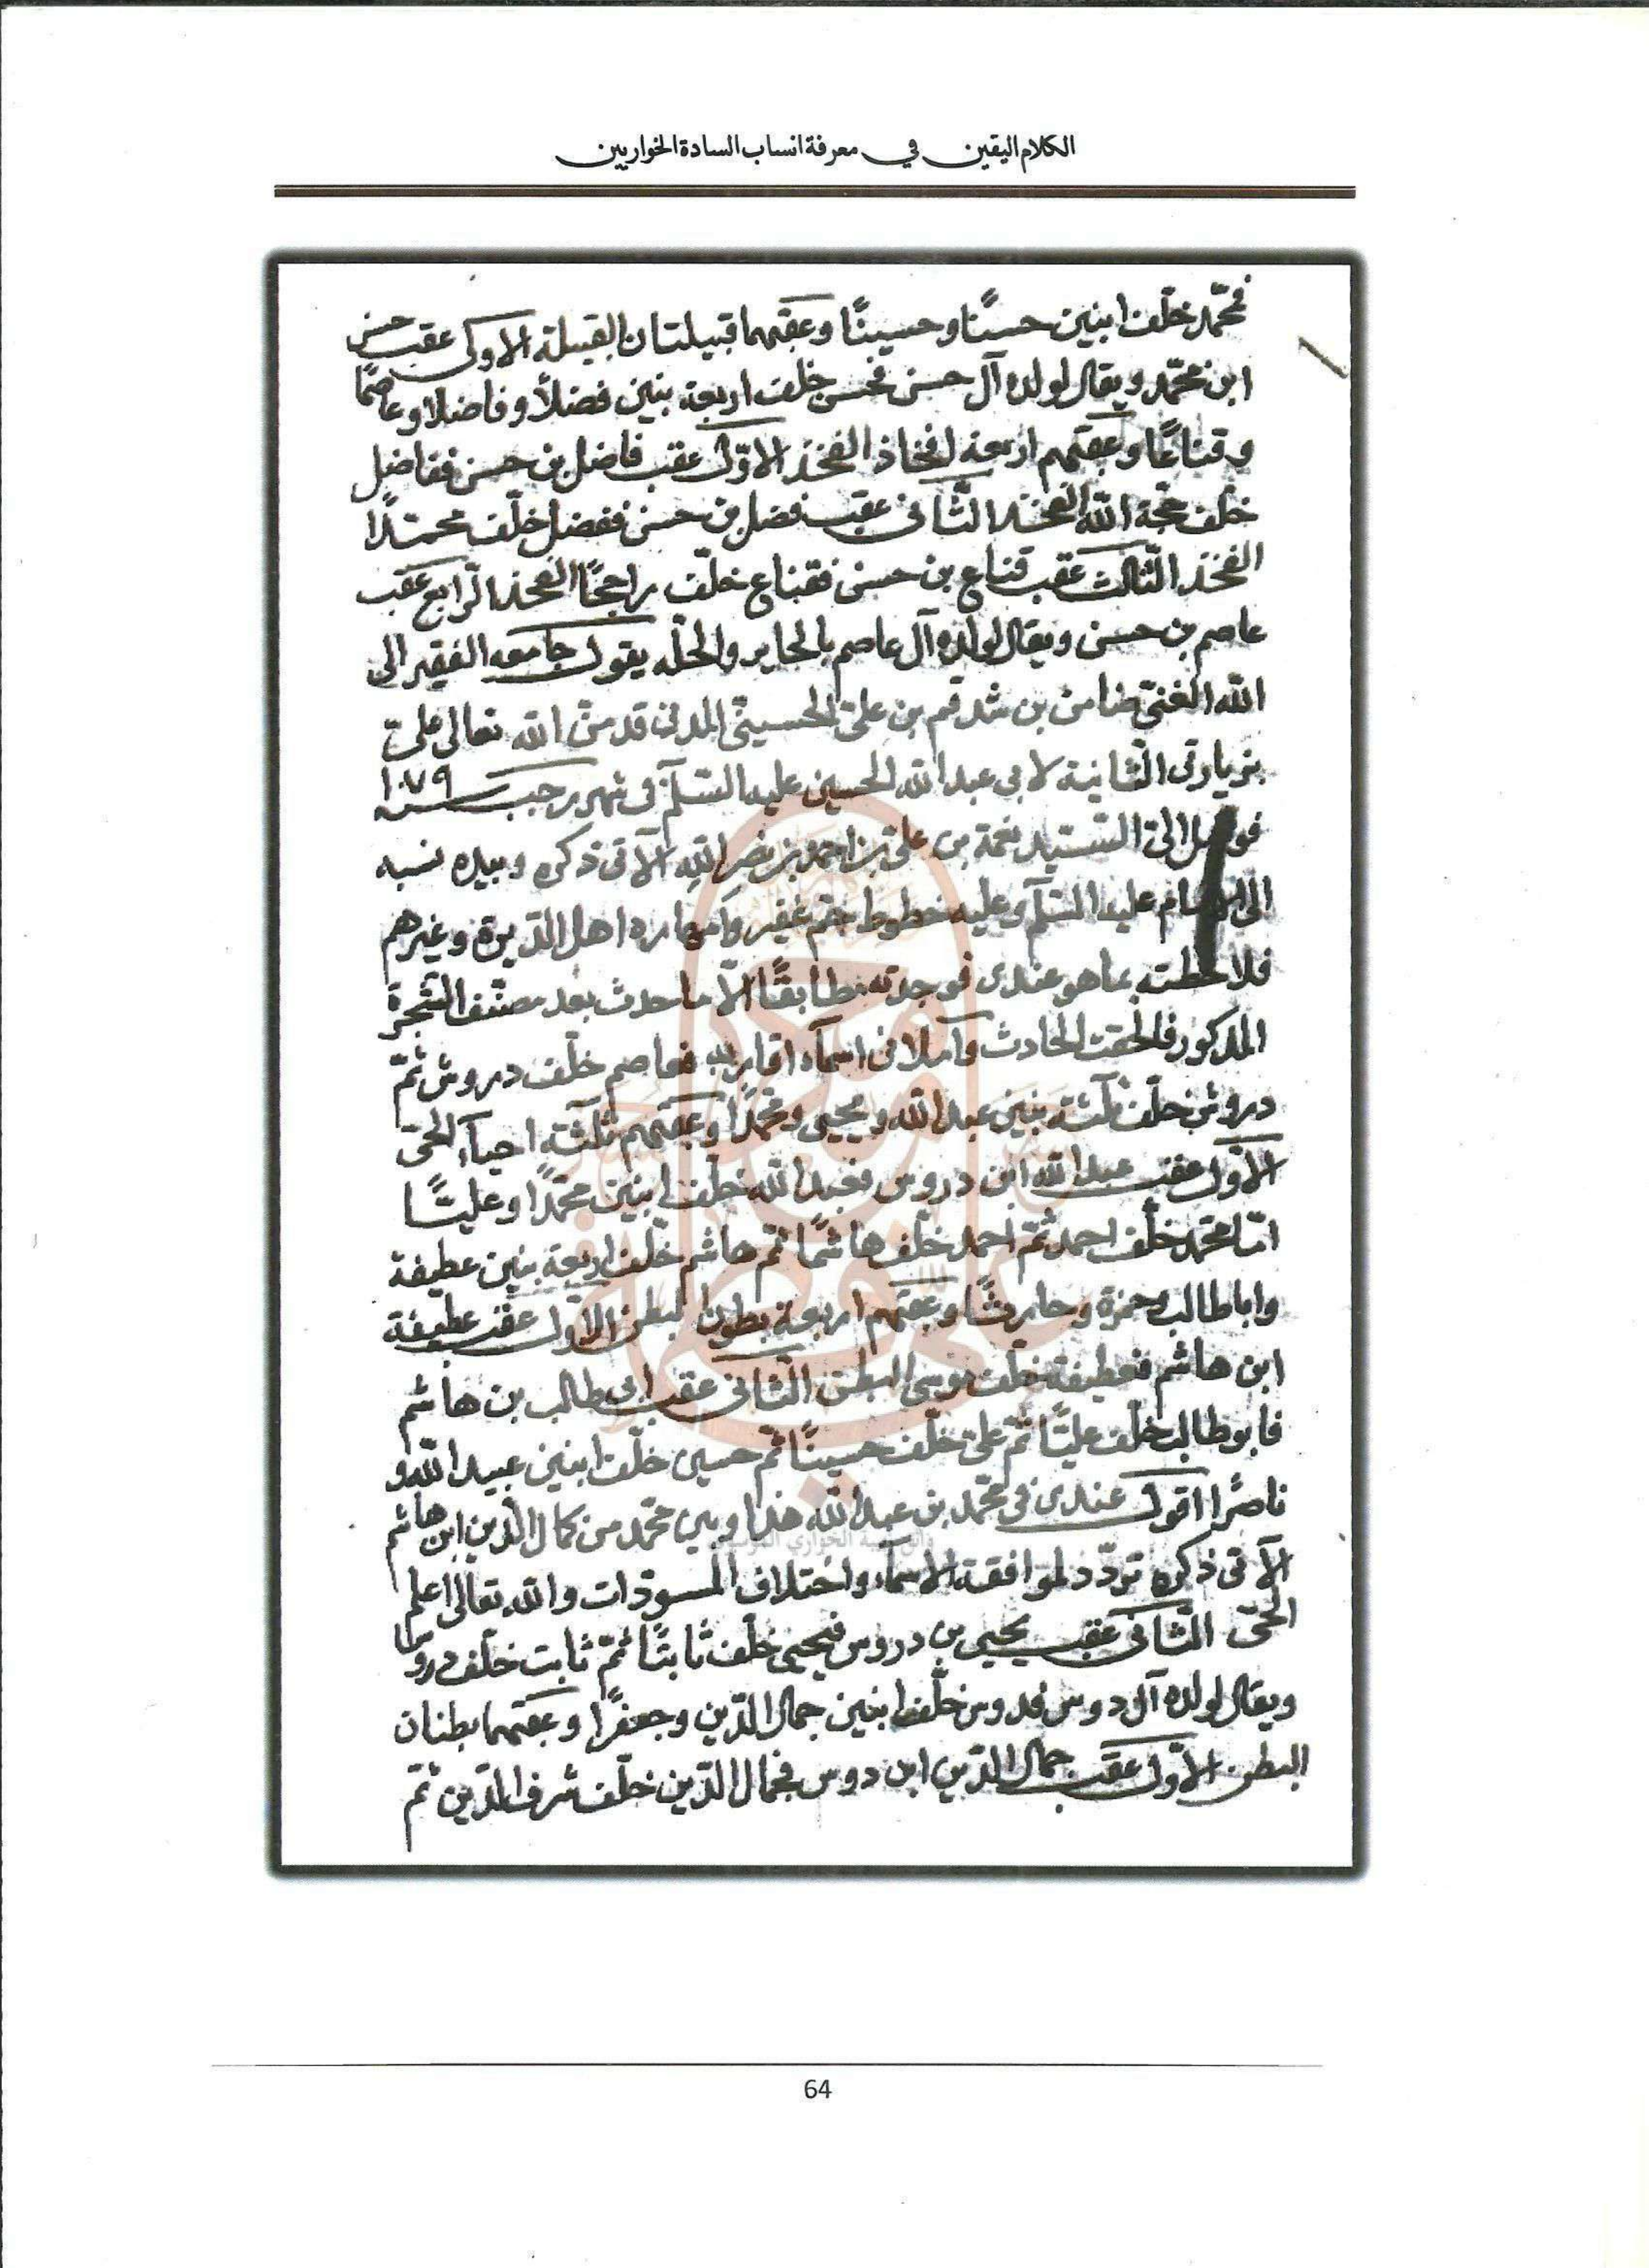 الكلام اليقين في معرفة انساب السادة الخواريين
فمحمّد خلّف ابنين حسنًا وحسينًا وعقبهما قبيلتان القبيلة الاولى عقب حسن
ابن محمّد ويقال لولده آل حسن فحسن خلّف اربعة بنين فضلًا وفاضلا وعاصمًا
وقناعًا وعقبهم اربعة افخاذ الفخذ الاوّل عقب فاضل بن حسن ففاضل
خلّف حجّة الله الفخذ الثّانى عقب فضل بن حسن ففضل خلّف محمدًا
الفخذ الثّالث عقب قناع بن حسن فقناع خلّف راجحًا الفخذ الرّابع عقب
عاصم بن حسن ويقال لولده آل عاصم بالحاير والحلّه يقول جامعه الفقير الى
الله الغنىّ ضامن بن شدقم بن علىّ الحسينىّ المدنى قد منّ الله تعالى علىّ
بزيارتى الثّانية لابى عبد الله الحسين عليه السّلم فى شهر رجب سنة ١٠٧٩
فوصل الىّ السّيد نعمة بن علىّ بن احمد بن نصر الله الآتى ذكره وبيده نسبه
الى الامام عليه السّلم وعليه خطوط جمّ غفير و اهل الدّيرة وغيرهم
فلاحظته بما هو عندى فوجدته مطابقًا الّا ما حدث بعد مصنّف الشّجرة
المذكور فالحقت الحادث واملانى اسمآء اقاربه فعاصم خلّف دروش ثمّ
دروش خلّف ثلثة بنين عبد الله ويحيى ومحمّدًا وعقبهم ثلثة احيآء الحىّ
الاوّل عقب عبد الله ابن دروس فعبد الله خلّف ابنين محمّدًا وعليًّا
امّا محمّد خلّف احمد ثمّ احمد خلّف هاشمًا ثمّ هاشم خلّف اربعة بنين عطيفة
وابا طالب وحمزة وحارثًا وعقبهم اربعة بطون البطن الاوّل عقب عطيفة
ابن هاشم فعطيفة خلّف موسى البطن الثّانى عقب ابى طالب بن هاشم
فابوطالب خلّف عليًّا ثمّ علىّ خلّف حسينًا ثمّ حسين خلّف ابنين عبيد الله و
ناصرًا اقول عندى فى محمّد بن عبد الله هذا وبين محمّد من كمال الدّين ابن هاشم
الآتى ذكره تردّد لموافقة الاسمآء واختلاف المسودّات والله تعالى اعلم
الحىّ الثّانى عقب يحيى بن دروس فيحيى خلّف ثابتًا ثمّ ثابت خلّف دروسًا
ويقال لولده آل دوس فدوس خلّف ابنين جمال الدّين وجعفرًا وعقبهما بطنان
البطن الاوّل عقب جمال الدّين ابن دوس فجمال الدّين خلّف شرف الدّين ثمّ
64